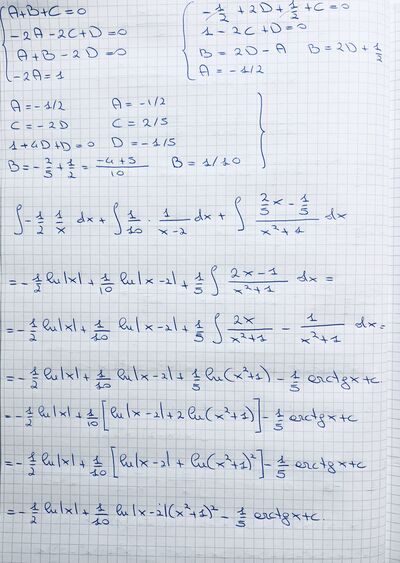 A+B+C=0
-2A-2C+D=0
A+B-2D=0
-2A=1
-1/2+2D+1/2+C=0
1-2C+D=0
B=2D-A B=2D+1/2
A=-1/2
A=-1/2 A=-1/2
C=-2D C=2/5
1+4D+D=0 D=-1/5
B=-2/5+1/2=(-4+5)/10 B=1/10
∫-1/2 1/x dx+∫1/10·1/(x-2) dx+∫(2/5x-1/5)/(x²+1) dx
=-1/2 ln|x|+1/10 ln|x-2|+1/5∫(2x-1)/(x²+1) dx=
=-1/2 ln|x|+1/10 ln|x-2|+1/5∫2x/(x²+1)-1/(x²+1) dx=
=-1/2 ln|x|+1/10 ln|x-2|+1/5 ln(x²+1)-1/5 arctgx+c.
=-1/2 ln|x|+1/10[ln|x-2|+2ln(x²+1)]-1/5 arctgx+c
=-1/2 ln|x|+1/10[ln|x-2|+ln(x²+1)²]-1/5 arctgx+c
=-1/2 ln|x|+1/10 ln|x-2|(x²+1)²-1/5 arctgx+c.